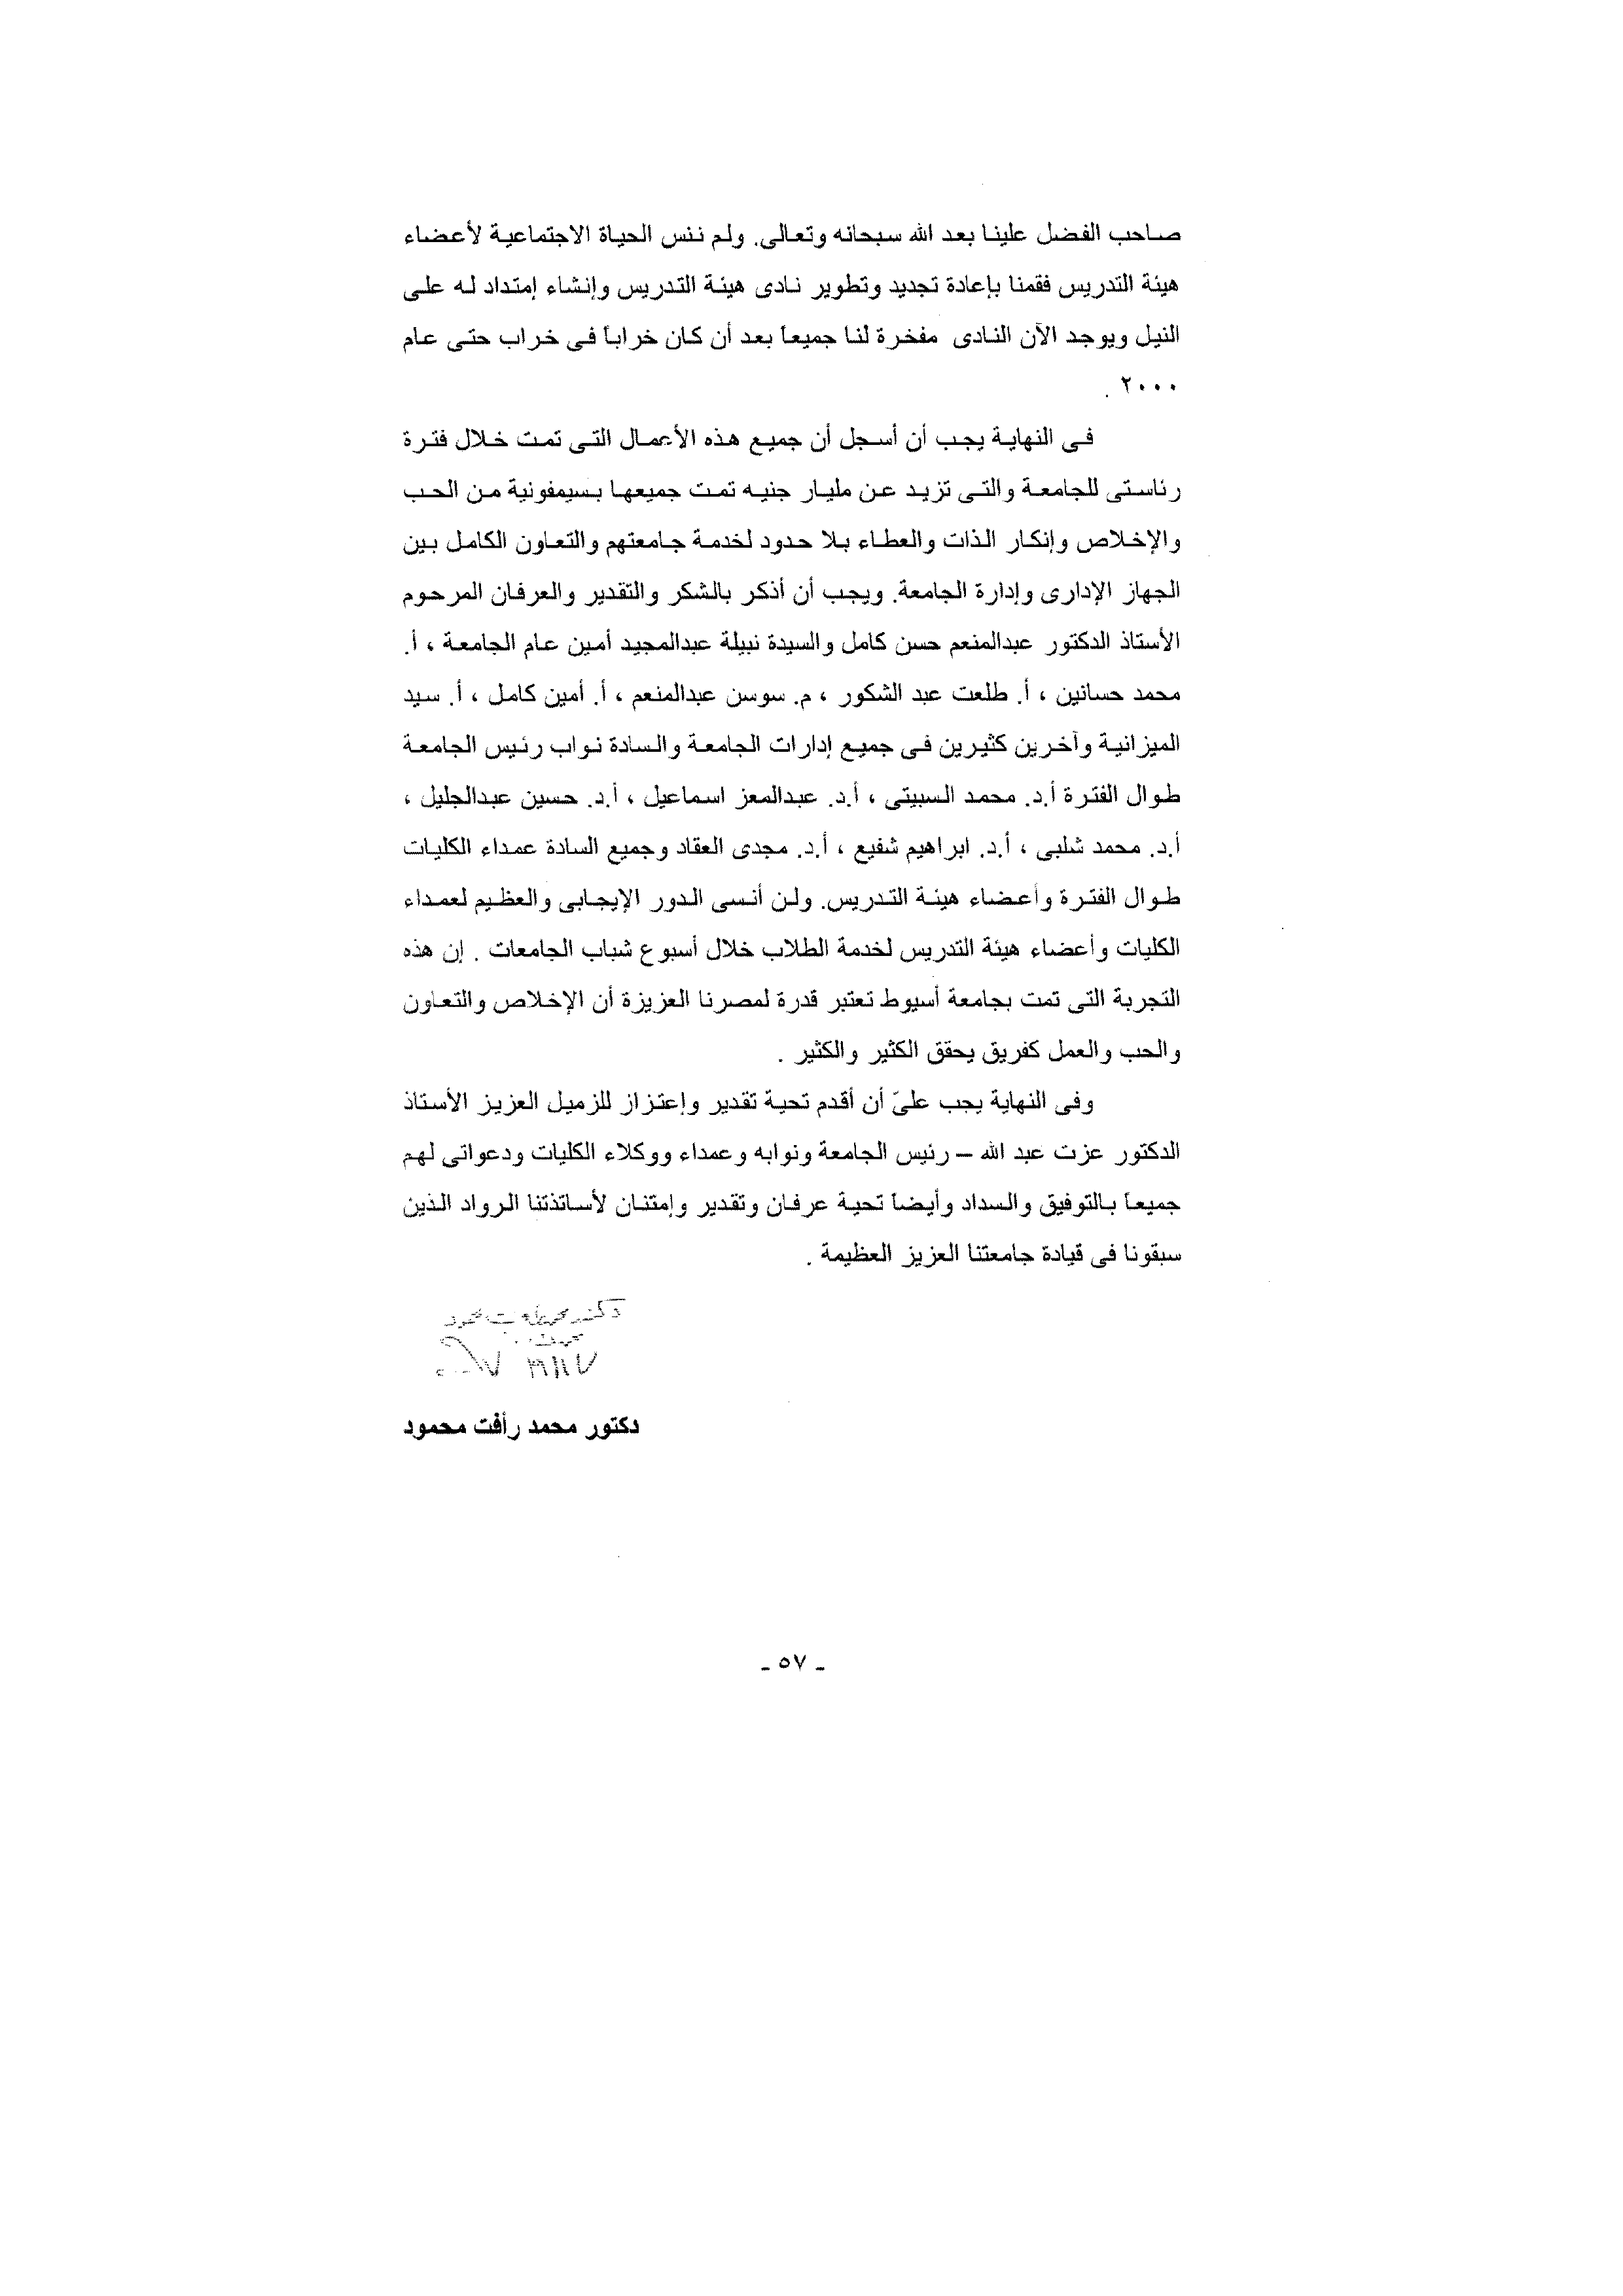 صاحب الفضل علينا بعد الله سبحانه وتعالى. ولم ننس الحياة الاجتماعية لأعضاء
هيئة التدريس فقمنا بإعادة تجديد وتطوير نادى هيئة التدريس وإنشاء إمتداد له على
النيل ويوجد الآن النادى مفخرة لنا جميعاً بعد أن كان خراباً فى خراب حتى عام
٢٠٠٠ .
فى النهاية يجب أن أسجل أن جميع هذه الأعمال التى تمت خلال فترة
رئاستى للجامعة والتى تزيد عن مليار جنيه تمت جميعها بسيمفونية من الحب
والإخلاص وإنكار الذات والعطاء بلا حدود لخدمة جامعتهم والتعاون الكامل بين
الجهاز الإدارى وإدارة الجامعة. ويجب أن أذكر بالشكر والتقدير والعرفان المرحوم
الأستاذ الدكتور عبدالمنعم حسن كامل والسيدة نبيلة عبدالمجيد أمين عام الجامعة ، أ.
محمد حسانين ، أ. طلعت عبد الشكور ، م. سوسن عبدالمنعم ، أ. أمين كامل ، أ. سيد
الميزانية وآخرين كثيرين فى جميع إدارات الجامعة والسادة نواب رئيس الجامعة
طوال الفترة أ.د. محمد السبيتى ، أ.د. عبدالمعز اسماعيل ، أ.د. حسين عبدالجليل ،
أ.د. محمد شلبى ، أ.د. ابراهيم شفيع ، أ.د. مجدى العقاد وجميع السادة عمداء الكليات
طوال الفترة وأعضاء هيئة التدريس. ولن أنسى الدور الإيجابى والعظيم لعمداء
الكليات وأعضاء هيئة التدريس لخدمة الطلاب خلال أسبوع شباب الجامعات . إن هذه
التجربة التى تمت بجامعة أسيوط تعتبر قدرة لمصرنا العزيزة أن الإخلاص والتعاون
والحب والعمل كفريق يحقق الكثير والكثير .
وفى النهاية يجب علىّ أن أقدم تحية تقدير وإعتزاز للزميل العزيز الأستاذ
الدكتور عزت عبد الله – رئيس الجامعة ونوابه وعمداء ووكلاء الكليات ودعواتى لهم
جميعاً بالتوفيق والسداد وأيضاً تحية عرفان وتقدير وإمتنان لأساتذتنا الرواد الذين
سبقونا فى قيادة جامعتنا العزيز العظيمة .
دكتور محمد رأفت محمود
دكتور محمد رأفت محمود
- ٥٧ -